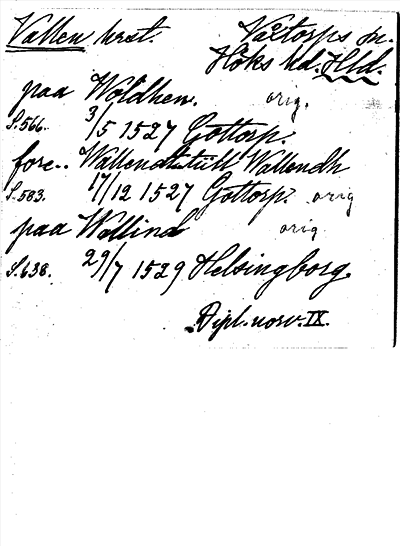 Vallen hrst. Våxtorps sn.
Höks hd. Hld.
paa Woldhen. orig.
S.566. 3/5 1527 Gottorp.
fore.. Wallendh tiill Wallendh
S.583. 17/12 1527 Gottorp. orig
paa Wallind orig
S.638. 29/7 1529 Helsingborg.
Dipl. norv. IX.